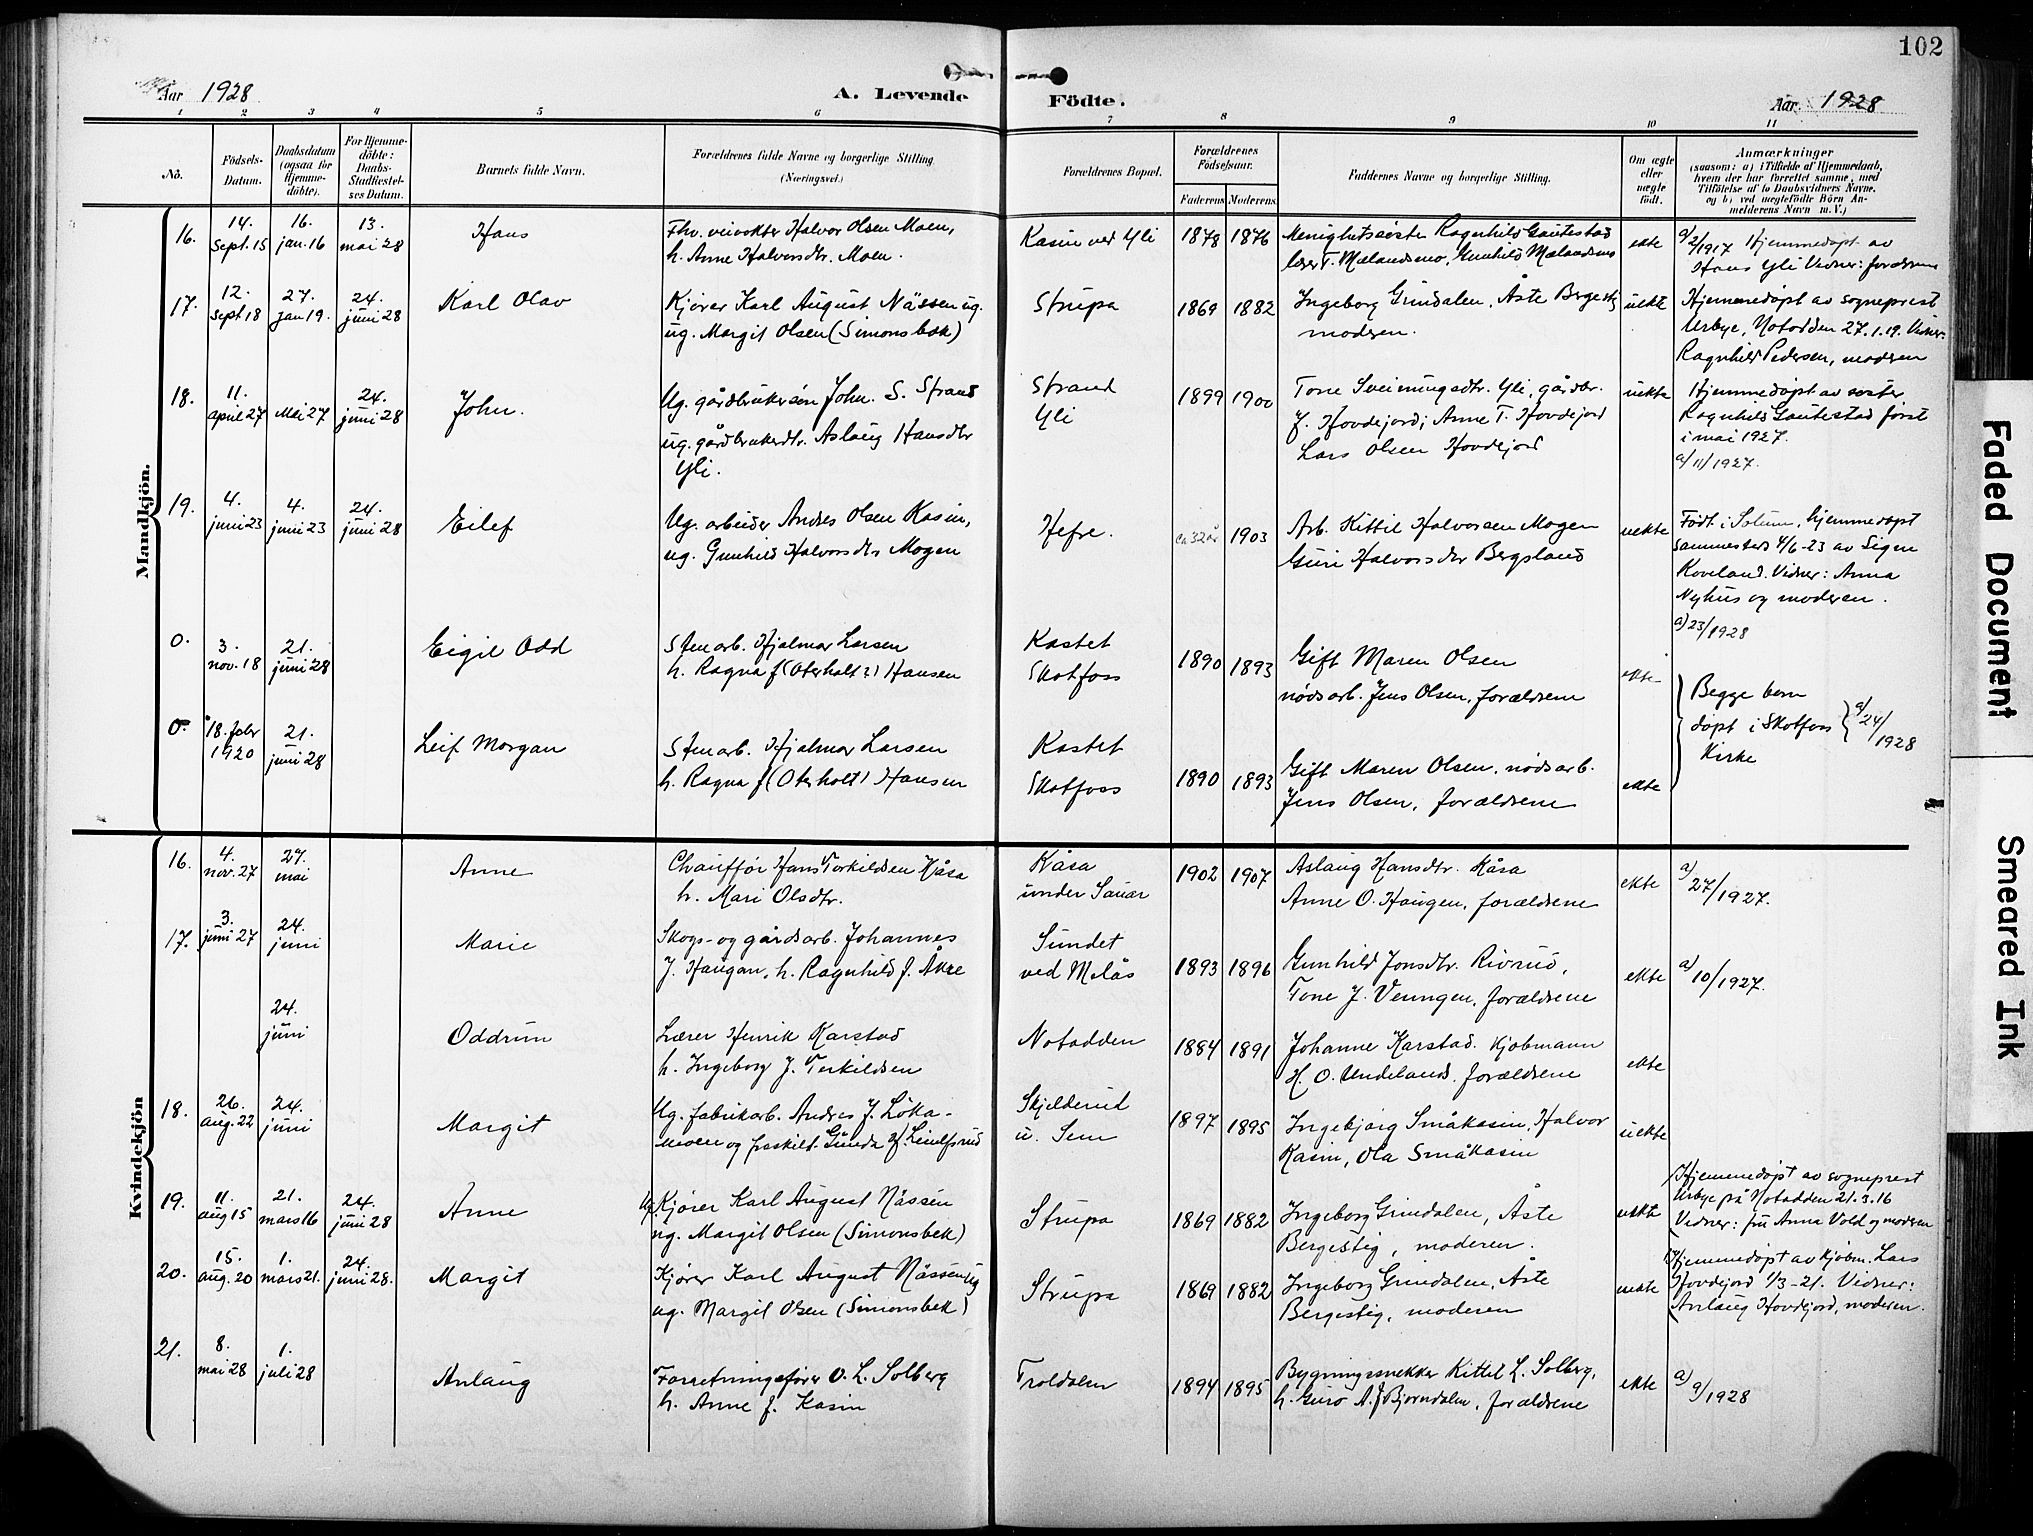 102
Aar 1928
A. Levende Födte.
Aar 1928
1 2 3 4 5 6 7 8 9 10 11
No.
Födsels-
Datum.
Daabsdatum
(ogsaa for
Hjemme-
döbte).
For Hjemme-
döbte:
Daabs-
Stadfæstel-
ses Datum.
Barnets fulde Navn.
Forældrenes fulde Navne og borgerlige Stilling
(Næringsvei.)
Forældrenes Bopæl.
Forældrenes
Födselsaar.
Faderens Moderens
Faddernes Navne og borgerlige Stilling.
Om ægte
eller
uægte
født.
Anmærkninger
(saasom: a) i Tilfælde af Hjemmedaab,
hvem der har forrettet samme, med
Tilföielse af to Daabsvidners Navne,
og b) ved uægtefödte Börn An-
melderens Navn m. V.)
Mandkjön.
16.
14.
Sept. 15
16.
jan. 16
13.
mai 28
Hans
Fhv. veivokter Halvor Olsen Moen,
h. Anne Halvorsdtr. Moen.
Kasin ved Yli
1878 1876
Menighetssøster Ragnhild Gautestad
lærer T. Mælandsmo, Gunhild Mælandsmo
ekte
a/2/1917 Hjemmedøpt av
Hans Yli Vidner: forældrene
17.
12.
sept 18
27.
jan 19.
24.
juni 28
Karl Olav
Kjører Karl August Nässen ug.
ug. Margit Olsen (Simonsbek)
Strupa
1869 1882
Ingeborg Grindalen, Åste Bergestig
moderen.
uekte
Hjemmedøpt av sogneprest
Urbye, Notodden 27.1.19. Vidner:
Ragnhild Pedersen, moderen
18.
11.
april 27
Mai 27
24.
juni 28
John.
Ug. gårdbrukersøn John. S. Strand
ug. gårdbrukerdtr. Aslaug Hansdtr
Yli.
Strand
Yli
1899 1900
Tone Sveinungsdtr. Yli, gårdbr.
J. Hovdejord; Anne T. Hovdejord
Lars Olsen Hovdejord
uekte
Hjemmedøpt av søster
Ragnhild Gautestad først
i mai 1927.
a/11/1927.
19.
4.
juni 23
4.
juni 23
24.
juni 28
Eilef
Ug. arbeider Andres Olsen Kasin,
ug. Gunhild Halvorsdtr Mogen
Hefre.
ca 32 år 1903
Arb. Kittil Halvorsen Mogen
Guri Halvorsdtr Bergsland
uekte
Født i Solum, hjemmedøpt
sammesteds 4/6-23 av Signe
Koveland. Vidner: Anna
Nyhus og moderen.
a) 23/1928
0.
3.
nov. 18
21.
juni 28
Eigil Odd
Stenarb. Hjalmar Larsen
h. Ragna f (Oterholt?) Hansen
Kastet
Skotfoss
1890 1893
Gift Maren Olsen
nødsarb. Jens Olsen, forældrene
ekte
Begge barn
døpt i Skotfoss
Kirke
a/24/1928
0.
18. febr
1920
21.
juni 28
Leif Morgan
Stenarb. Hjalmar Larsen
h. Ragna f (Oterholt) Hansen
Kastet
Skotfoss
1890 1893
Gift Maren Olsen, nødsarb.
Jens Olsen, forældrene
ekte
Kvindekjön
16.
4.
nov. 27
27.
mai
Anne
Chauffør Hans Torkildsen Kåsa
h. Mari Olsdtr.
Kåsa
under Sauar
1902 1907
Aslaug Hansdtr. Kåsa
Anne O. Haugen, forældrene
ekte
a) 27/1927.
17.
3.
juni 27
24.
juni
Marie
Skogs- og gårdsarb. Johannes
J. Haugan, h. Ragnhild f. Åkre
Sundet
ved Melås
1893 1896
Gunhild Jonsdtr. Rivrud,
Tone J. Venngen, forældrene
ekte
a) 10/1927.
24.
juni
Oddrun
Lærer Henrik Karstad
h. Ingeborg J. Terkildsen
Notodden
1884 1891
Johanne Karstad. Kjøbmann
H. O. Undeland, forældrene
ekte
18.
26.
aug. 22
24.
juni
Margit
Ug. fabrikarb. Andres J. Løka-
moen og fraskilt Gunda H. Leulfsrud
Skjelderud
u. Sem
1897 1895
Ingebjørg Småkasin, Halvor
Kasin, Ola Småkasin
uekte
19.
11.
aug 15
21.
mars 16
24.
juni 28
Anne
Ug. Kjører Karl August Nässen
ug. Margit Olsen (Simonsbek)
Strupa
1869 1882
Ingeborg Grindalen, Åste
Bergestig, moderen.
uekte
Hjemmedøpt av sogneprest
Urbye på Notodden 21.3.16
Vidner: fru Anna Vold og moderen
20.
15.
aug. 20
1.
mars 21.
24.
juni 28.
Margit
Kjører Karl August Nässen ug
ug. Margit Olsen (Simonsbek)
Strupa
1869 1882
Ingeborg Grindalen, Åste
Bergestig, moderen
uekte
Hjemmedøpt av kjøbm. Lars
Hovdejord 1/3-21. Vidner:
Anlaug Hovdejord, moderen.
21.
8.
mai 28
1.
juli 28
Anlaug
Forretningsfører O. L. Solberg
h. Anne f. Kasin
Troldalen
1894 1895
Bygningssnekker Kittel L. Solberg,
h. Guro A. f Bjørndalen, forældrene
ekte
a) 9/1928
Faded Document
Smeared Ink